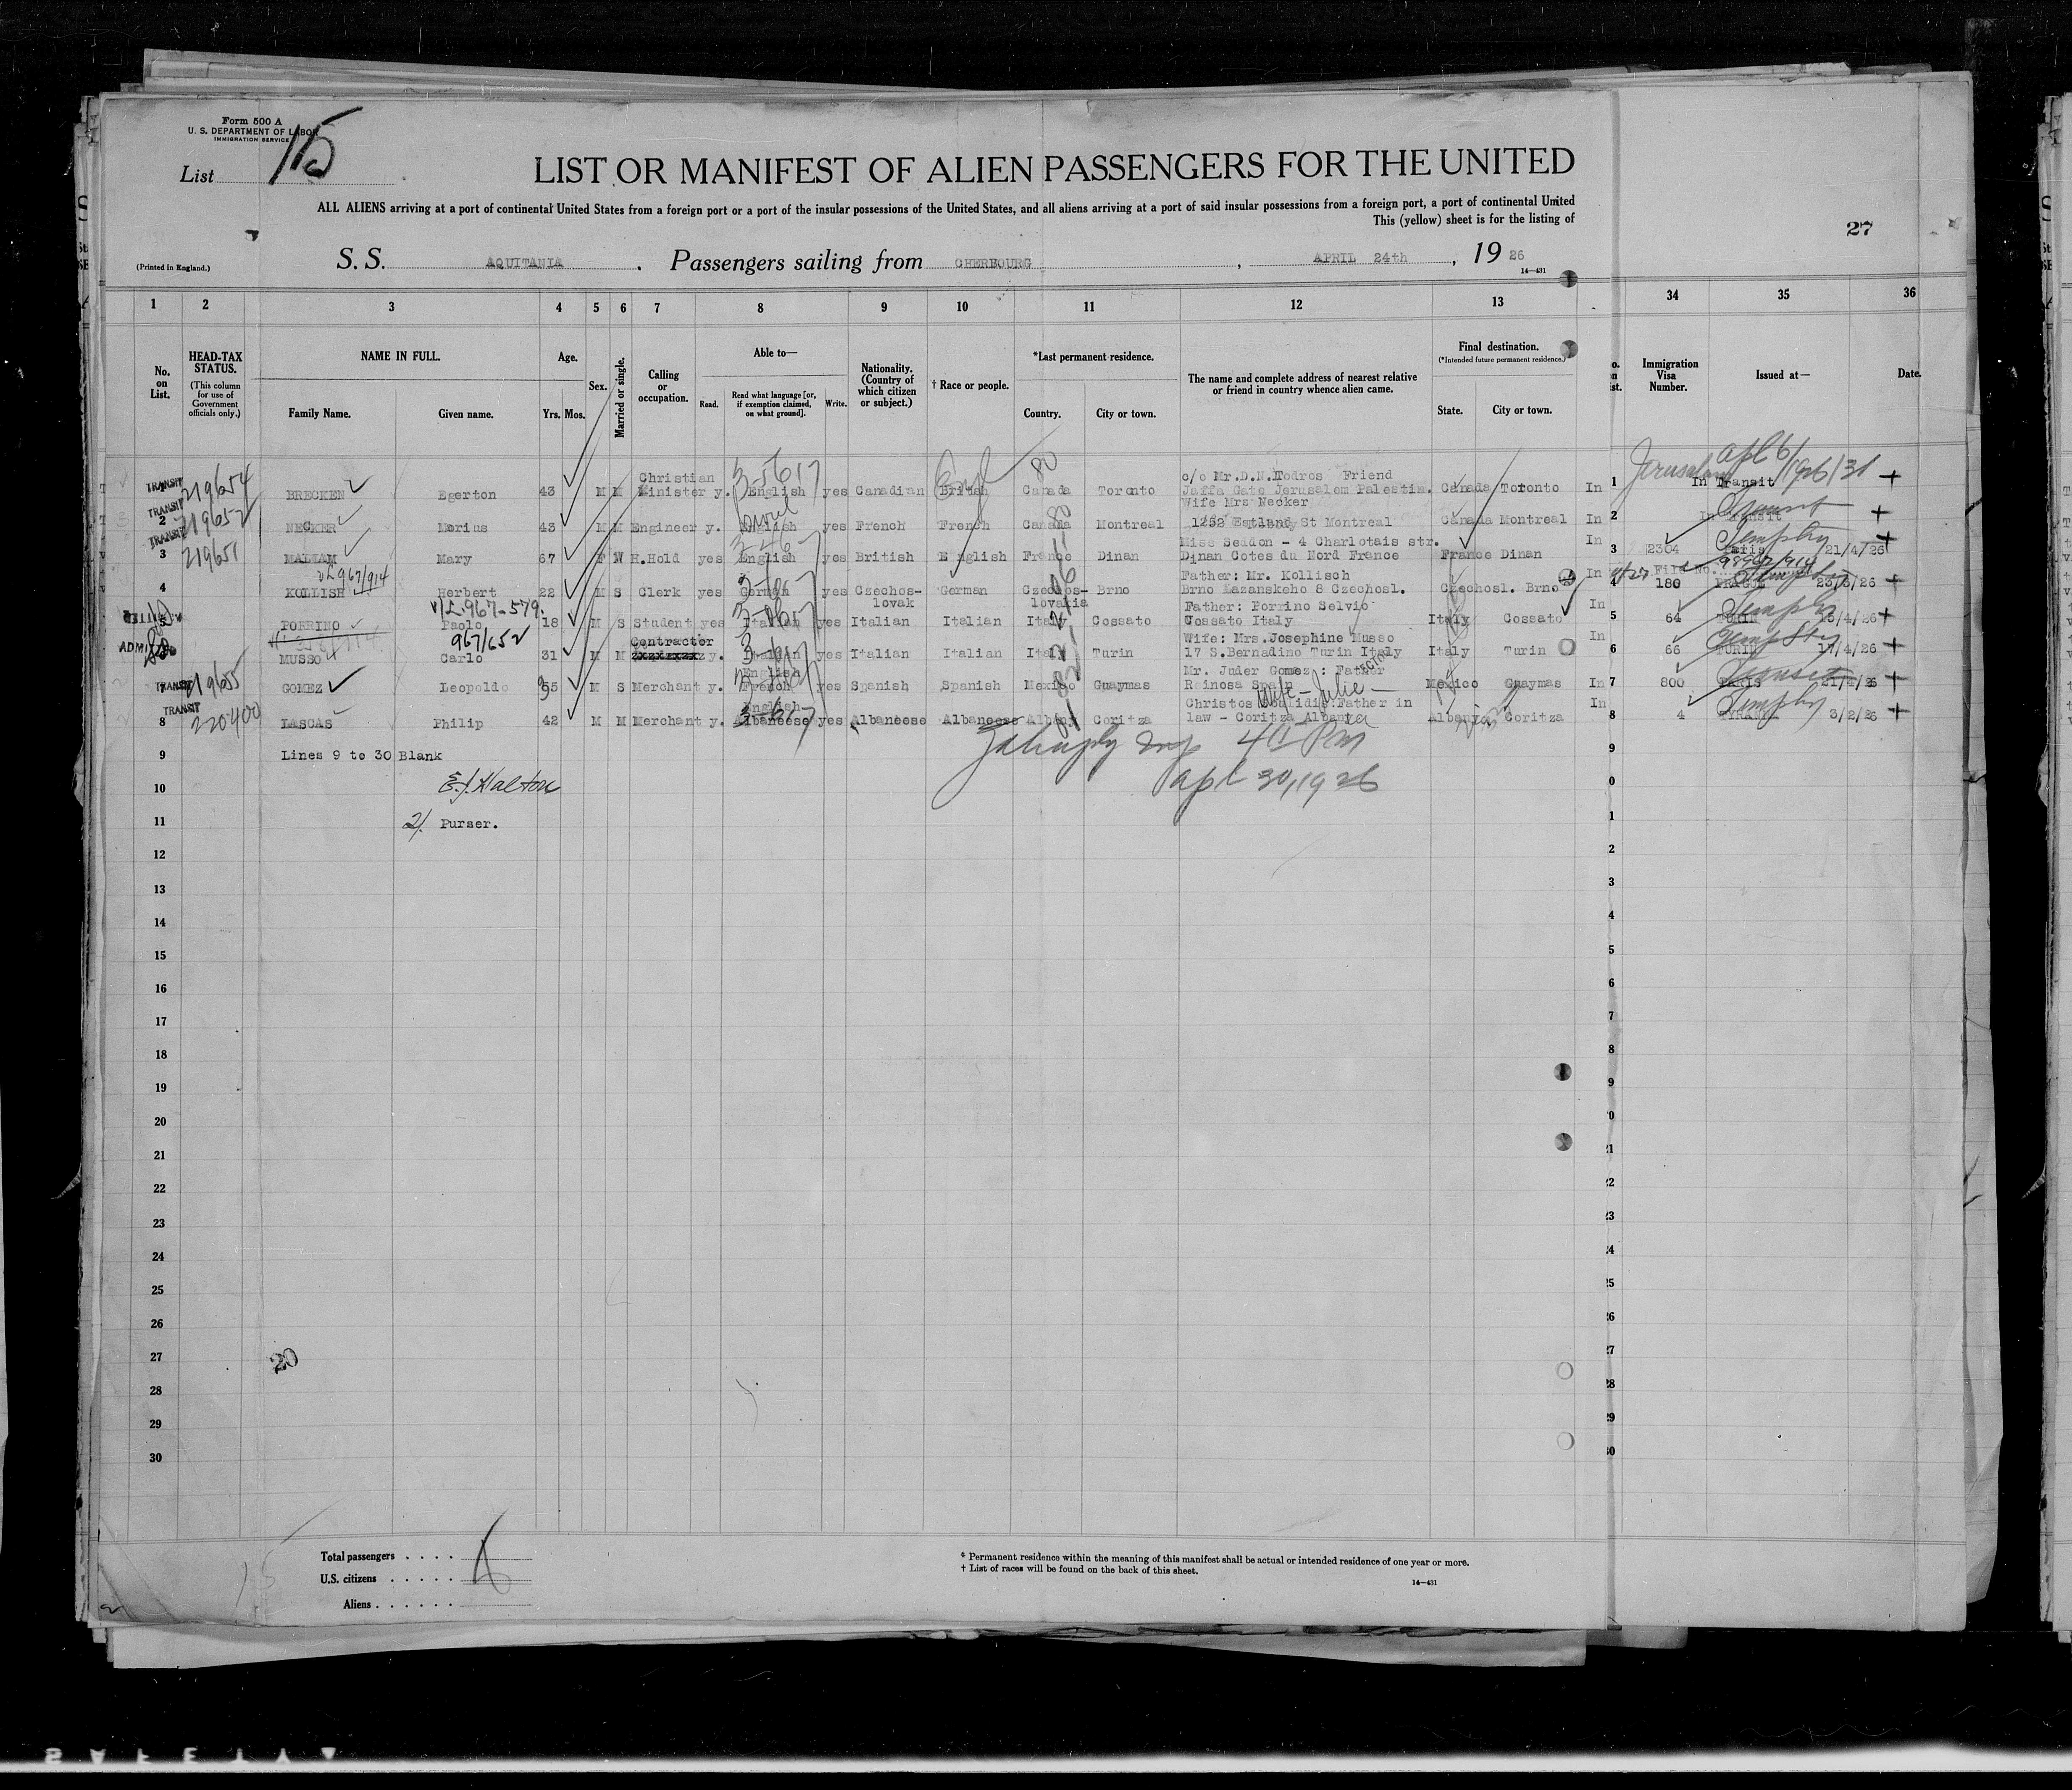 Form 500 A
U. S. DEPARTMENT OF LABOR
IMMIGRATION SERVICE
List 15
LIST OR MANIFEST OF ALIEN PASSENGERS FOR THE UNITED
ALL ALIENS arriving at a port of continental United States from a foreign port or a port of the insular possessions of the United States, and all aliens arriving at a port of said insular possessions from a foreign port, a port of continental United
This (yellow) sheet is for the listing of
27
(Printed in England.)
S. S. AQUITANIA . Passengers sailing from CHERBOURG , APRIL 24th , 19 26
14—431
1 2 3 4 5 6 7 8 9 10 11 12 13 34 35 36
No. on List.
HEAD-TAX STATUS. (This column for use of Government officials only.)
NAME IN FULL.
Family Name. Given name.
Age. Yrs. Mos.
Sex.
Married or single.
Calling or occupation.
Able to—
Read. Read what language [or, if exemption claimed, on what ground]. Write.
Nationality. (Country of which citizen or subject.)
† Race or people.
*Last permanent residence.
Country. City or town.
The name and complete address of nearest relative or friend in country whence alien came.
Final destination. (*Intended future permanent residence.)
State. City or town.
Immigration Visa Number.
Issued at—
Date.
TRANSIT 219654 BRECKEN Egerton 43 M M Christian Minister y. English yes Canadian British Canada Toronto c/o Mr.D.N.Todros Friend
Jaffa Gate Jerusalem Palestin. Canada Toronto In 1 In Transit Jerusalem apl 6/1926
TRANSIT 2 219652 NECKER Morius 43 M M Engineer y. English yes French French Canada Montreal Wife Mrs Necker
1252 Estland St Montreal Canada Montreal In 2 In Transit
TRANSIT 3 219651 Mary 67 F W H.Hold yes English yes British English France Dinan Miss Seddon - 4 Charlotais str.
Dinan Cotes du Nord France France Dinan In 3 2304 Paris 21/4/26
4 KOLLISH 967/914 Herbert 22 M S Clerk yes German yes Czechos-lovak German Czechos-lovakia Brno Father: Mr. Kollisch
Brno Mazanskeho 8 Czechosl. Czechosl. Brno In File No. 4 180 PRAGUE
5 PORRINO Paolo 967-579. 18 M S Student yes Italian yes Italian Italian Italy Cossato Father: Porrino Selvio
Cossato Italy Italy Cossato In 5 64 TURIN
ADMITTED MUSSO Carlo 967/652 31 M M Contractor y. Italian yes Italian Italian Italy Turin Wife: Mrs.Josephine Musso
17 S.Bernadino Turin Italy Italy Turin In 6 66 TURIN 17/4/26
TRANSIT 7 219655 GOMEZ Leopoldo M S Merchant y. English French yes Spanish Spanish Mexico Guaymas Mr. Juder Gomez : Father
Reinosa Spain Mexico Guaymas In 7 800 PARIS 21/4/26
TRANSIT 8 220400 LASCAS Philip 42 M M Merchant y. English Albaneese yes Albaneese Albaneese Albany Coritza Wife - Julie -
law - Coritza Albania Albania Coritza In 8 4 TYRANA 3/2/26
9 Lines 9 to 30 Blank
apl 30, 1926
10 E.J. Walton
11 Purser.
12
13
14
15
16
17
18
19
20
21
22
23
24
25
26
27 20
28
29
30
Total passengers . . . .
U.S. citizens . . . . .
Aliens . . . . . .
* Permanent residence within the meaning of this manifest shall be actual or intended residence of one year or more.
† List of races will be found on the back of this sheet.
14—431